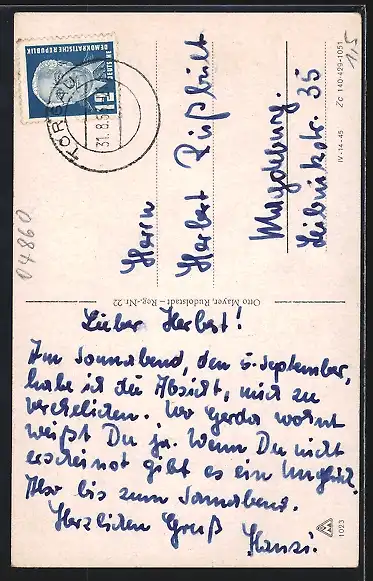 DEUTSCHE
DEMOKRATISCHE REPUBLIK
12
TORGAU
31.8.5
1,5
04860
Herrn
Herbert Rüßbült
Magdeburg.
Leibnizstr. 35
IV-14-45 Zc 140-429-1051
Otto Mayer, Rudolstadt – Reg.-Nr. 22
Lieber Herbert!
Am Sonnabend, den 5. September,
habe ich die Absicht, mich zu
verehelichen. Wo Gerda wohnt
weißt Du ja. Wenn Du nicht
erscheinst gibt es ein Unglück.
Also bis zum Sonnabend.
Herzlichen Gruß
Hansi.
1023